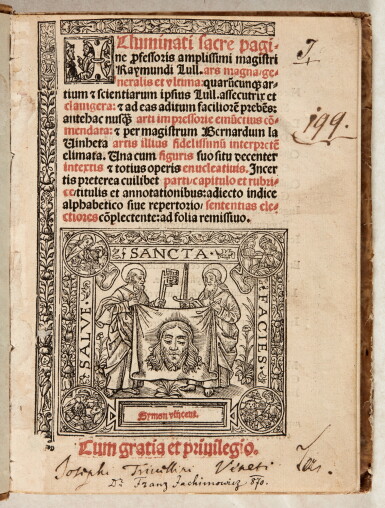 Illuminati sacre pagi-
ne ꝓfessoris amplissimi magistri
Raymundi Lull. ars magna: ge
neralis et vltima: quarūcunqꝫ ar-
tium ⁊ scientiarum ipsius Lull. assecutrix et
clauigera: ⁊ ad eas aditum faciliorē prebēs:
antehac nusqꝫ̄ arti impressorie emūctius cō
mendata: ⁊ per magistrum Bernardum la
Vinheta artis illius fidelissimū interpretē
elimata. Una cum figuris suo situ decenter
intextis ⁊ totius operis enucleatiuis. Incer
tis preterea cuilibet parti: capitulo et rubri-
ce: titulis et annotationibus: adiecto indice
alphabetico siue repertorio: sententias ele-
ctiores cōplectente: ad folia remissiuo.
199.
SANCTA
SALVE
FACIES
Symon vincent.
Cum gratia et priuilegio.
Josephi Veneti
Dr Franz Jachimowicz 870.